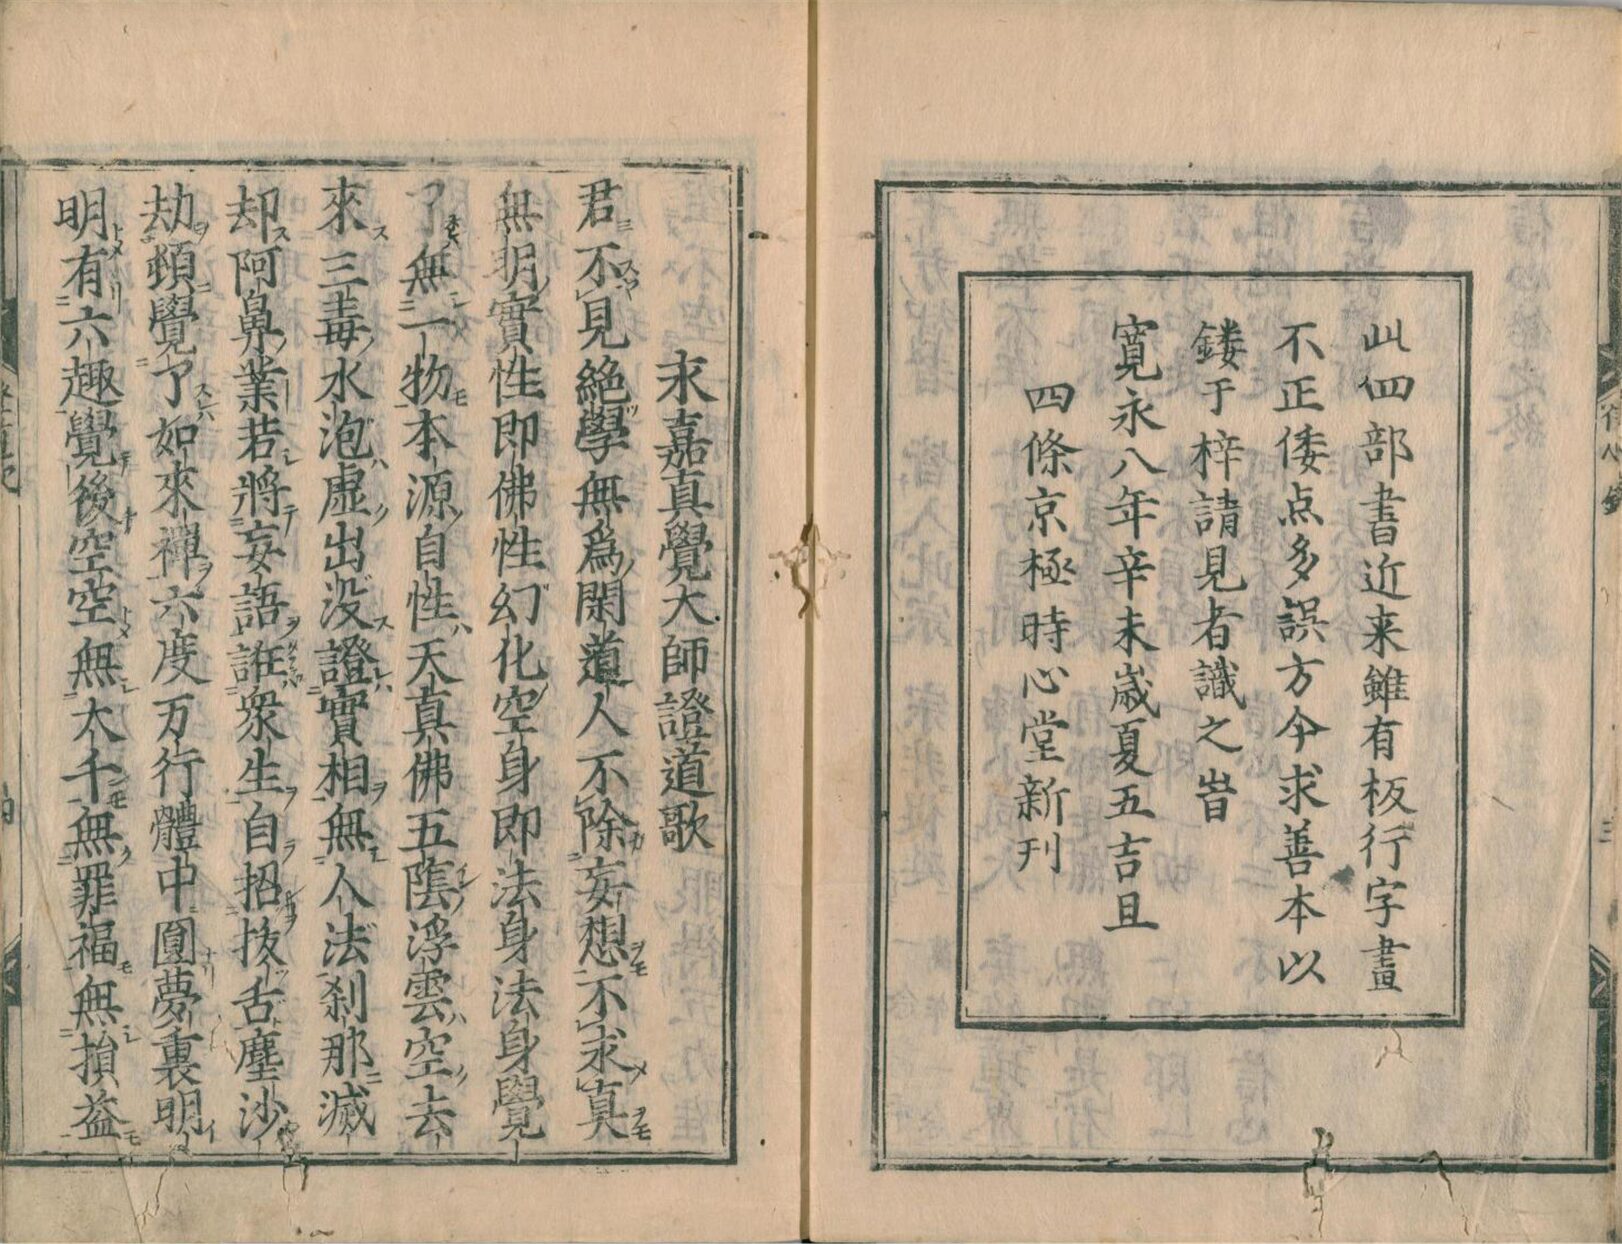 此四部書近来雖有板行字畫
不正倭点多誤方今求善本以
鏤于梓請見者識之旹
寛永八年辛未歳夏五吉旦
四條京極時心堂新刊
永嘉真覺大師證道歌
君不見絶學無爲閑道人不除妄想不求真
無明實性即佛性幻化空身即法身法身覺
了無一物本源自性天真佛五陰浮雲空去
來三毒水泡虚出没證實相無人法刹那滅
却阿鼻業若將妄語誑衆生自招抜舌塵沙
劫頓覺了如來禪六度万行體中圓夢裏明
明有六趣覺後空空無大千無罪福無損益